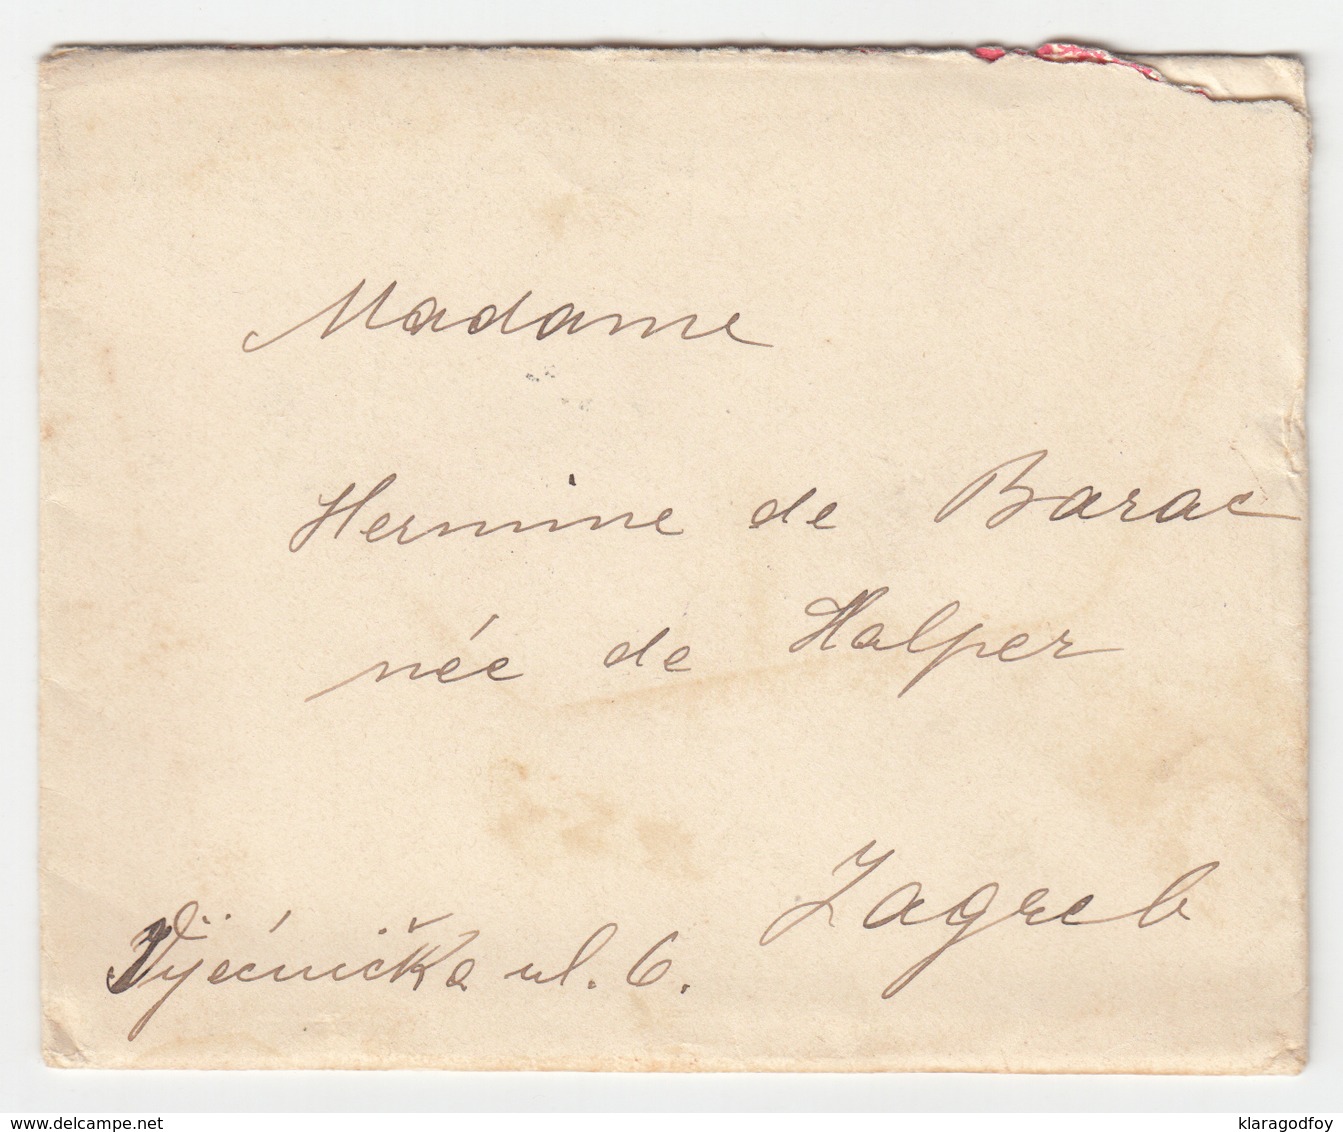 Madame
Hermine de Barac
née de Halper
Zagreb
Vijećnička ul. 6.
www.delcampe.net
klaragodfoy